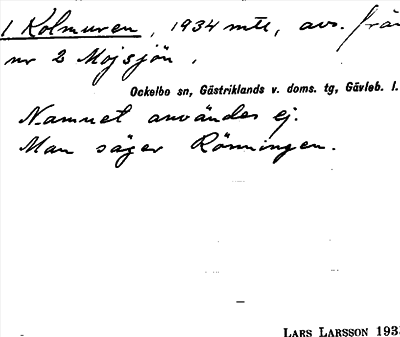 1 Kolmuren, 1934 mtl, avs. från
nr 2 Mojsjön.
Ockelbo sn, Gästriklands v. doms. tg, Gävleb. l.
Namnet användes ej.
Man säger Rönningen.
LARS LARSSON 193